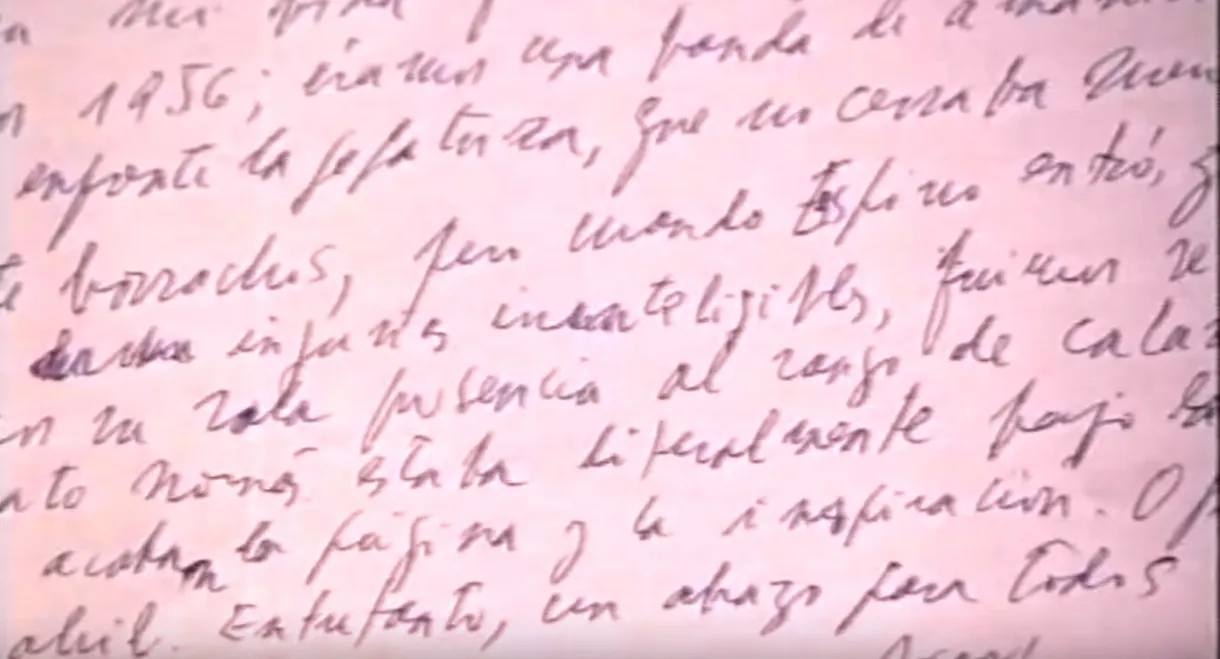 en mi vida
1956; éramos una banda de
enfrente la jefatura, que no cerraba nun
borrachos, pero cuando Espino entró,
injurias ininteligibles, fuimos re
su sola presencia al rango de cala
nomás estaba literalmente bajo
acaban la página y la inspiración. O
abril. Entretanto, un abrazo para todos